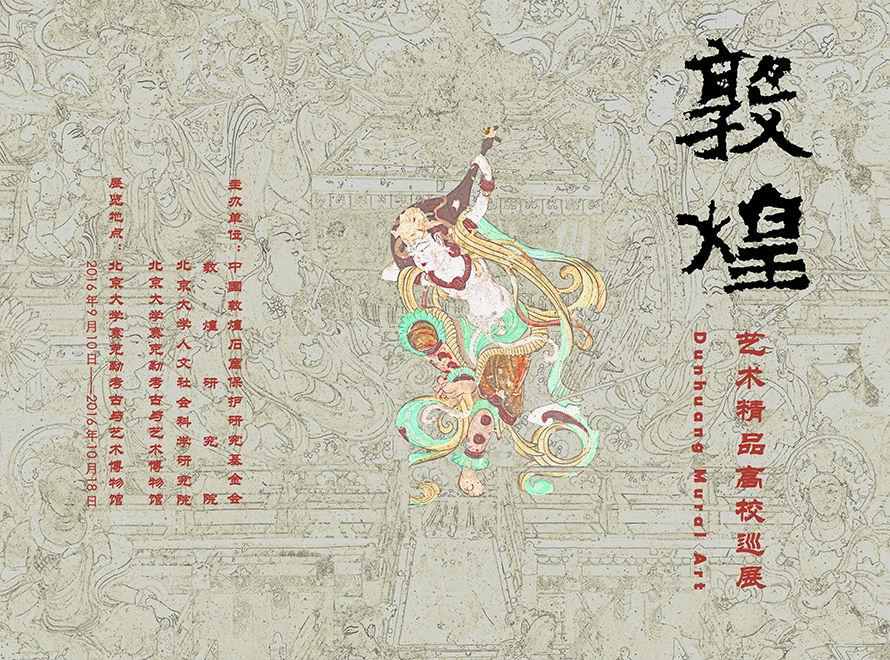 敦煌
艺术精品高校巡展
Dunhuang Mural Art
主办单位：中國敦煌石窟保护研究基金会
敦煌研究院
北京大学人文社会科学研究院
北京大学赛克勒考古与艺术博物馆
展览地点：北京大学赛克勒考古与艺术博物馆
2016年9月10日——2016年10月18日